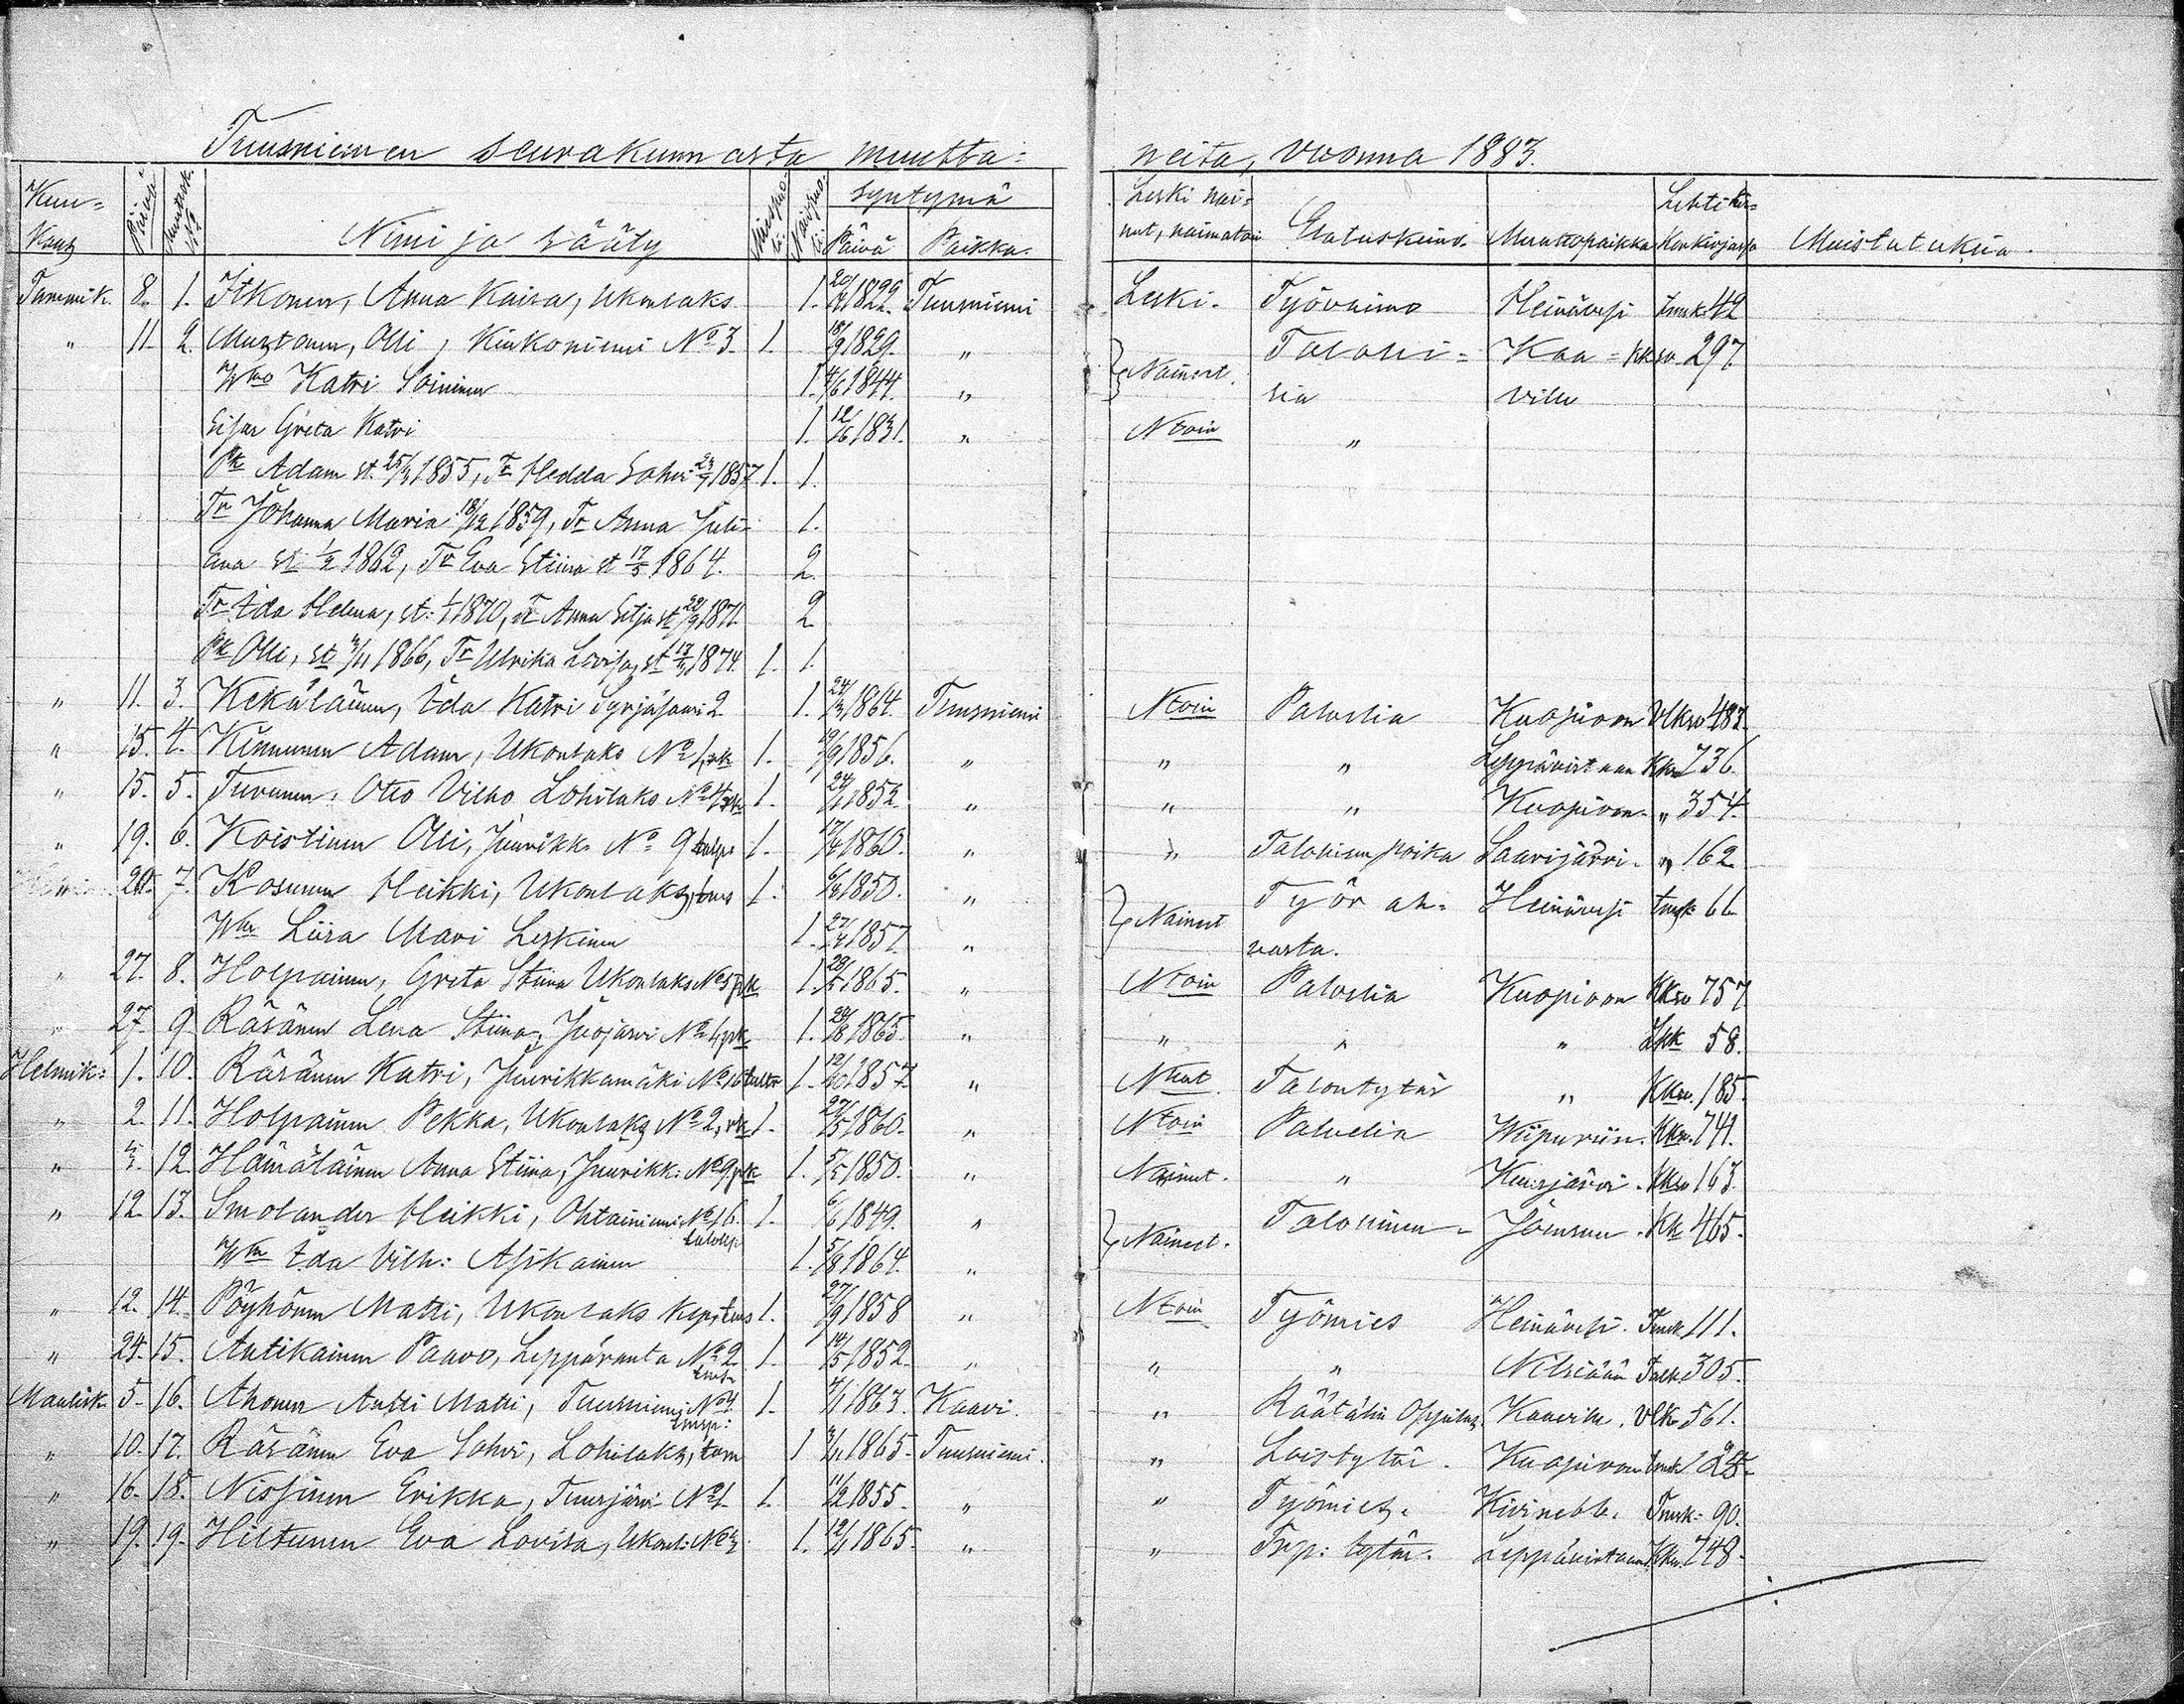 Tuusniemen seurakunnasta muutta= neita, vuonna 1883.
Kuu= kausi Päivä Muuttok. No Nimi ja sääty Miespuo. Naispuo. Syntymä Päivä Paikka. Leski nai= nut, naimatoin Elatuskeino. Muuttopaikka Lehti kir= konkirjassa Muistutuksia.
Tammik. 8. 1. Itkonen, Anna Kaisa, Ukonlaks 1. 1822. Tuusniemi Leski. Työvaimo Heinävesi 42
" 11. 2. Mustonen, Olli, Kiukoniemi No 3. 1. 18/9 1829. " } Nainut. Talolli= Kaa= kkr 297.
Wmo Katri Soininen 1. 4/6 1844. " sia ville
Sisar Greta Katri 1. 12/6 1831. " Ntoin "
Pk Adam st. 25/3 1855, Tr Hedda Sohvi 23/7 1857 1. 1.
Tr Johanna Maria 18/12 1859, Tr Anna Juli= 1.
ana st 1/2 1862, Tr Eva Stiina st 17/5 1864. 2.
Tr Ida Helena, st: 1/1 1870, Tr Anna Silja st 22/9 1871. 2
Pk Olli, st 3/11 1866, Tr Ulrika Lovisa, st 1874. 1. 1.
" 11. 3. Kekäläinen, Ida Katri Syrjäsaari 2. 1. 24/3 1864. Tuusniemi Ntoin Palvelia Kuopioon 483.
" 15. 4. Kinnunen Adam, Ukonlaks No 1, rk 1. 19/9 1856. " " " Leppävirtaan Kkr 736.
" 15. 5. Turunen, Otto Vilho Lohilaks No 4 rk 1. 24/1 1852. " " " Kuopioon. " 354.
" 19. 6. Koistinen Olli, Juurikk: No 9 talp: 1. 17/4 1860. " " Talollisen poika Saarijärvi. " 162
20. 7. Kosunen Heikki, Ukonlaks, tms 1. 1850. " } Nainut Työr ah= Heinävesi tmsk 66
Wmo Liisa Mari Leskinen 1. 27/4 1857. " vasta.
" 27. 8. Holpainen, Greta Stiina Ukonlaks No 5 pk 1. 28/5 1865. " Ntoin Palvelia Kuopioon Kkr 757
" 27. 9. Räsänen Lena Stiina, Juojärvi No 6, pk 1. 24/8 1865. " " " " Lkk 58.
Helmik: 1. 10. Räsänen Katri, Juurikkamäki No 16 taltr 1. 12/10 1857. " Nnut. Talontytär " Kkr. 185.
" 2. 11. Holpainen Pekka, Ukonlaks No 2, rk 1. 27/5 1860. " Ntoin Palvelia Wiipuriin. Kkr. 741.
" 12. Hämäläinen Anna Stiina, Juurikk: No 9. pk 1. 5/5 1850. " Nainut. " Kuusjärvi. Kkr 163.
" 12. 13. Smolander Heikki, Ohtainiemi No 16. talollis 1. 6/6 1849. " } Nainut. Talollinen. Jämsään. Kk 465.
Wmo Ida Vilh: Asikainen 1. 5/8 1864. "
" 12. 14. Pöyhönen Matti, Ukonlaks kip. tms 1. 27/9 1858 " Ntoin Työmies Heinävesi. Tmsk 111.
" 24. 15. Antikainen Paavo, Leppäranta No 2. tms 1. 14/5 1852. " " " Nilsiään Tmsk 305.
Maalisk. 5. 16. Ahonen Antti Matti, Tuusniemi No 4. tmsp: 1. 4/1 1863. Kaavi. " Räätälin Oppilas Kaaville. Vlk 561.
" 10. 17. Räsänen Eva Sohvi, Lohilaks, 1 3/11 1865. Tuusniemi. " Loistytär. Kuopioon tmsk 24.
" 16. 18. Nissinen Erikka, Tuusjärvi No 1. 1. 11/2 1855. " " Työmies. Kivinebb. Tmsk: 90.
" 19. 19. Hiltunen Eva Lovisa, Ukonl: No 3 1. 12/1 1865. " " Trp: tytär. Leppävirtaan Kkr. 748.